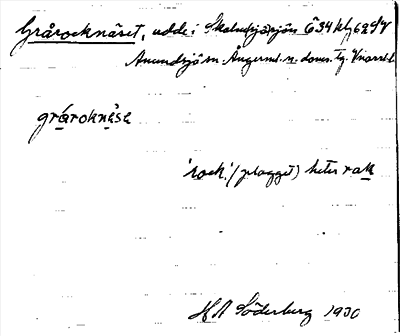 Grårocknäset, udde i Skalmsjösjön Ö34 kbf 62 SV
Anundsjö sn. Ångerml. n. doms. tg. Vnorrl. l
gråroknäse
'rock' (plagget) heter rak
HN Söderberg 1930